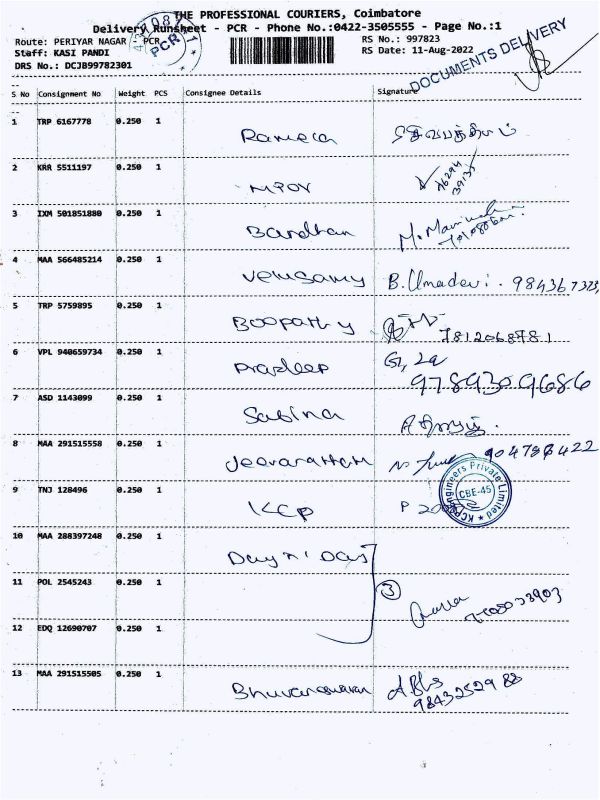 THE PROFESSIONAL COURIERS, Coimbatore
Delivery Runsheet - PCR - Phone No.:0422-3505555 - Page No.:1
Route: PERIYAR NAGAR - PCR
RS No.: 997823
Staff: KASI PANDI
RS Date: 11-Aug-2022
DRS No.: DCJB99782301
PCR
DOCUMENTS DELIVERY
S No Consignment No Weight PCS Consignee Details Signature
1 TRP 6167778 0.250 1 Ramesh
2 KRR 5511197 0.250 1
3 IXM 501851880 0.250 1 Bardhan
4 MAA 566485214 0.250 1 Velusamy B. Umadevi.
5 TRP 5759895 0.250 1 Boopathy 7812068781
6 VPL 940659734 0.250 1 Pradeep
9789309686
7 ASD 1143099 0.250 1 Sabina
8 MAA 291515558 0.250 1
9 TNJ 128496 0.250 1 KCP
KCP Engineers Private Limited
CBE-45
10 MAA 288397248 0.250 1
11 POL 2545243 0.250 1 3
12 EDQ 12690707 0.250 1
13 MAA 291515505 0.250 1 Bhuvaneswaran